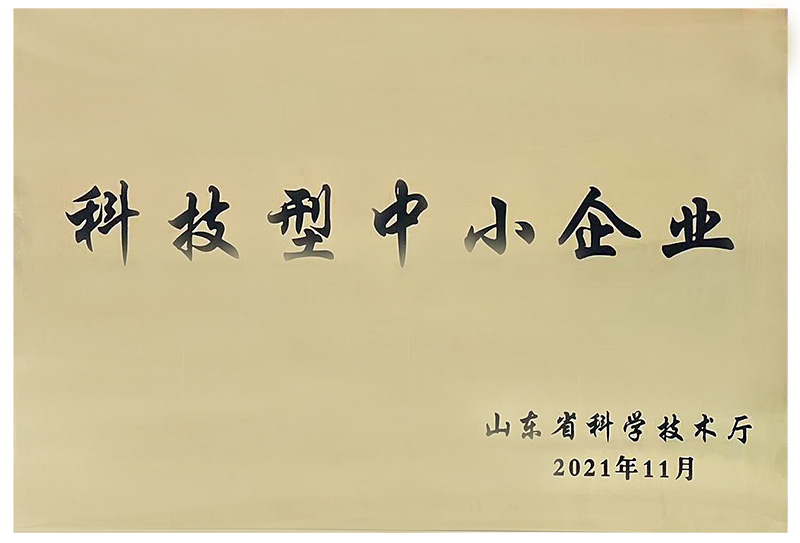 科技型中小企业
山东省科学技术厅
2021年11月